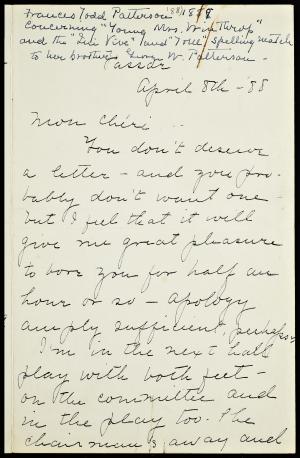 Frances Todd Patterson (88) 1888
Concerning "Young Mrs. Winthrop"
and the "Qui Vive" and "T and M" spelling match
to her brother W. Patterson -
Vassar
April 8th - 88
Mon Chéri -
You don't deserve
a letter - and you pro-
bably don't want one -
but I feel that it will
give me great pleasure
to bore you for half an
hour or so - apology
amply sufficient, perhaps -
I'm in the next hall
play with both feet -
on the committee and
in the play too. The
chairman is away and